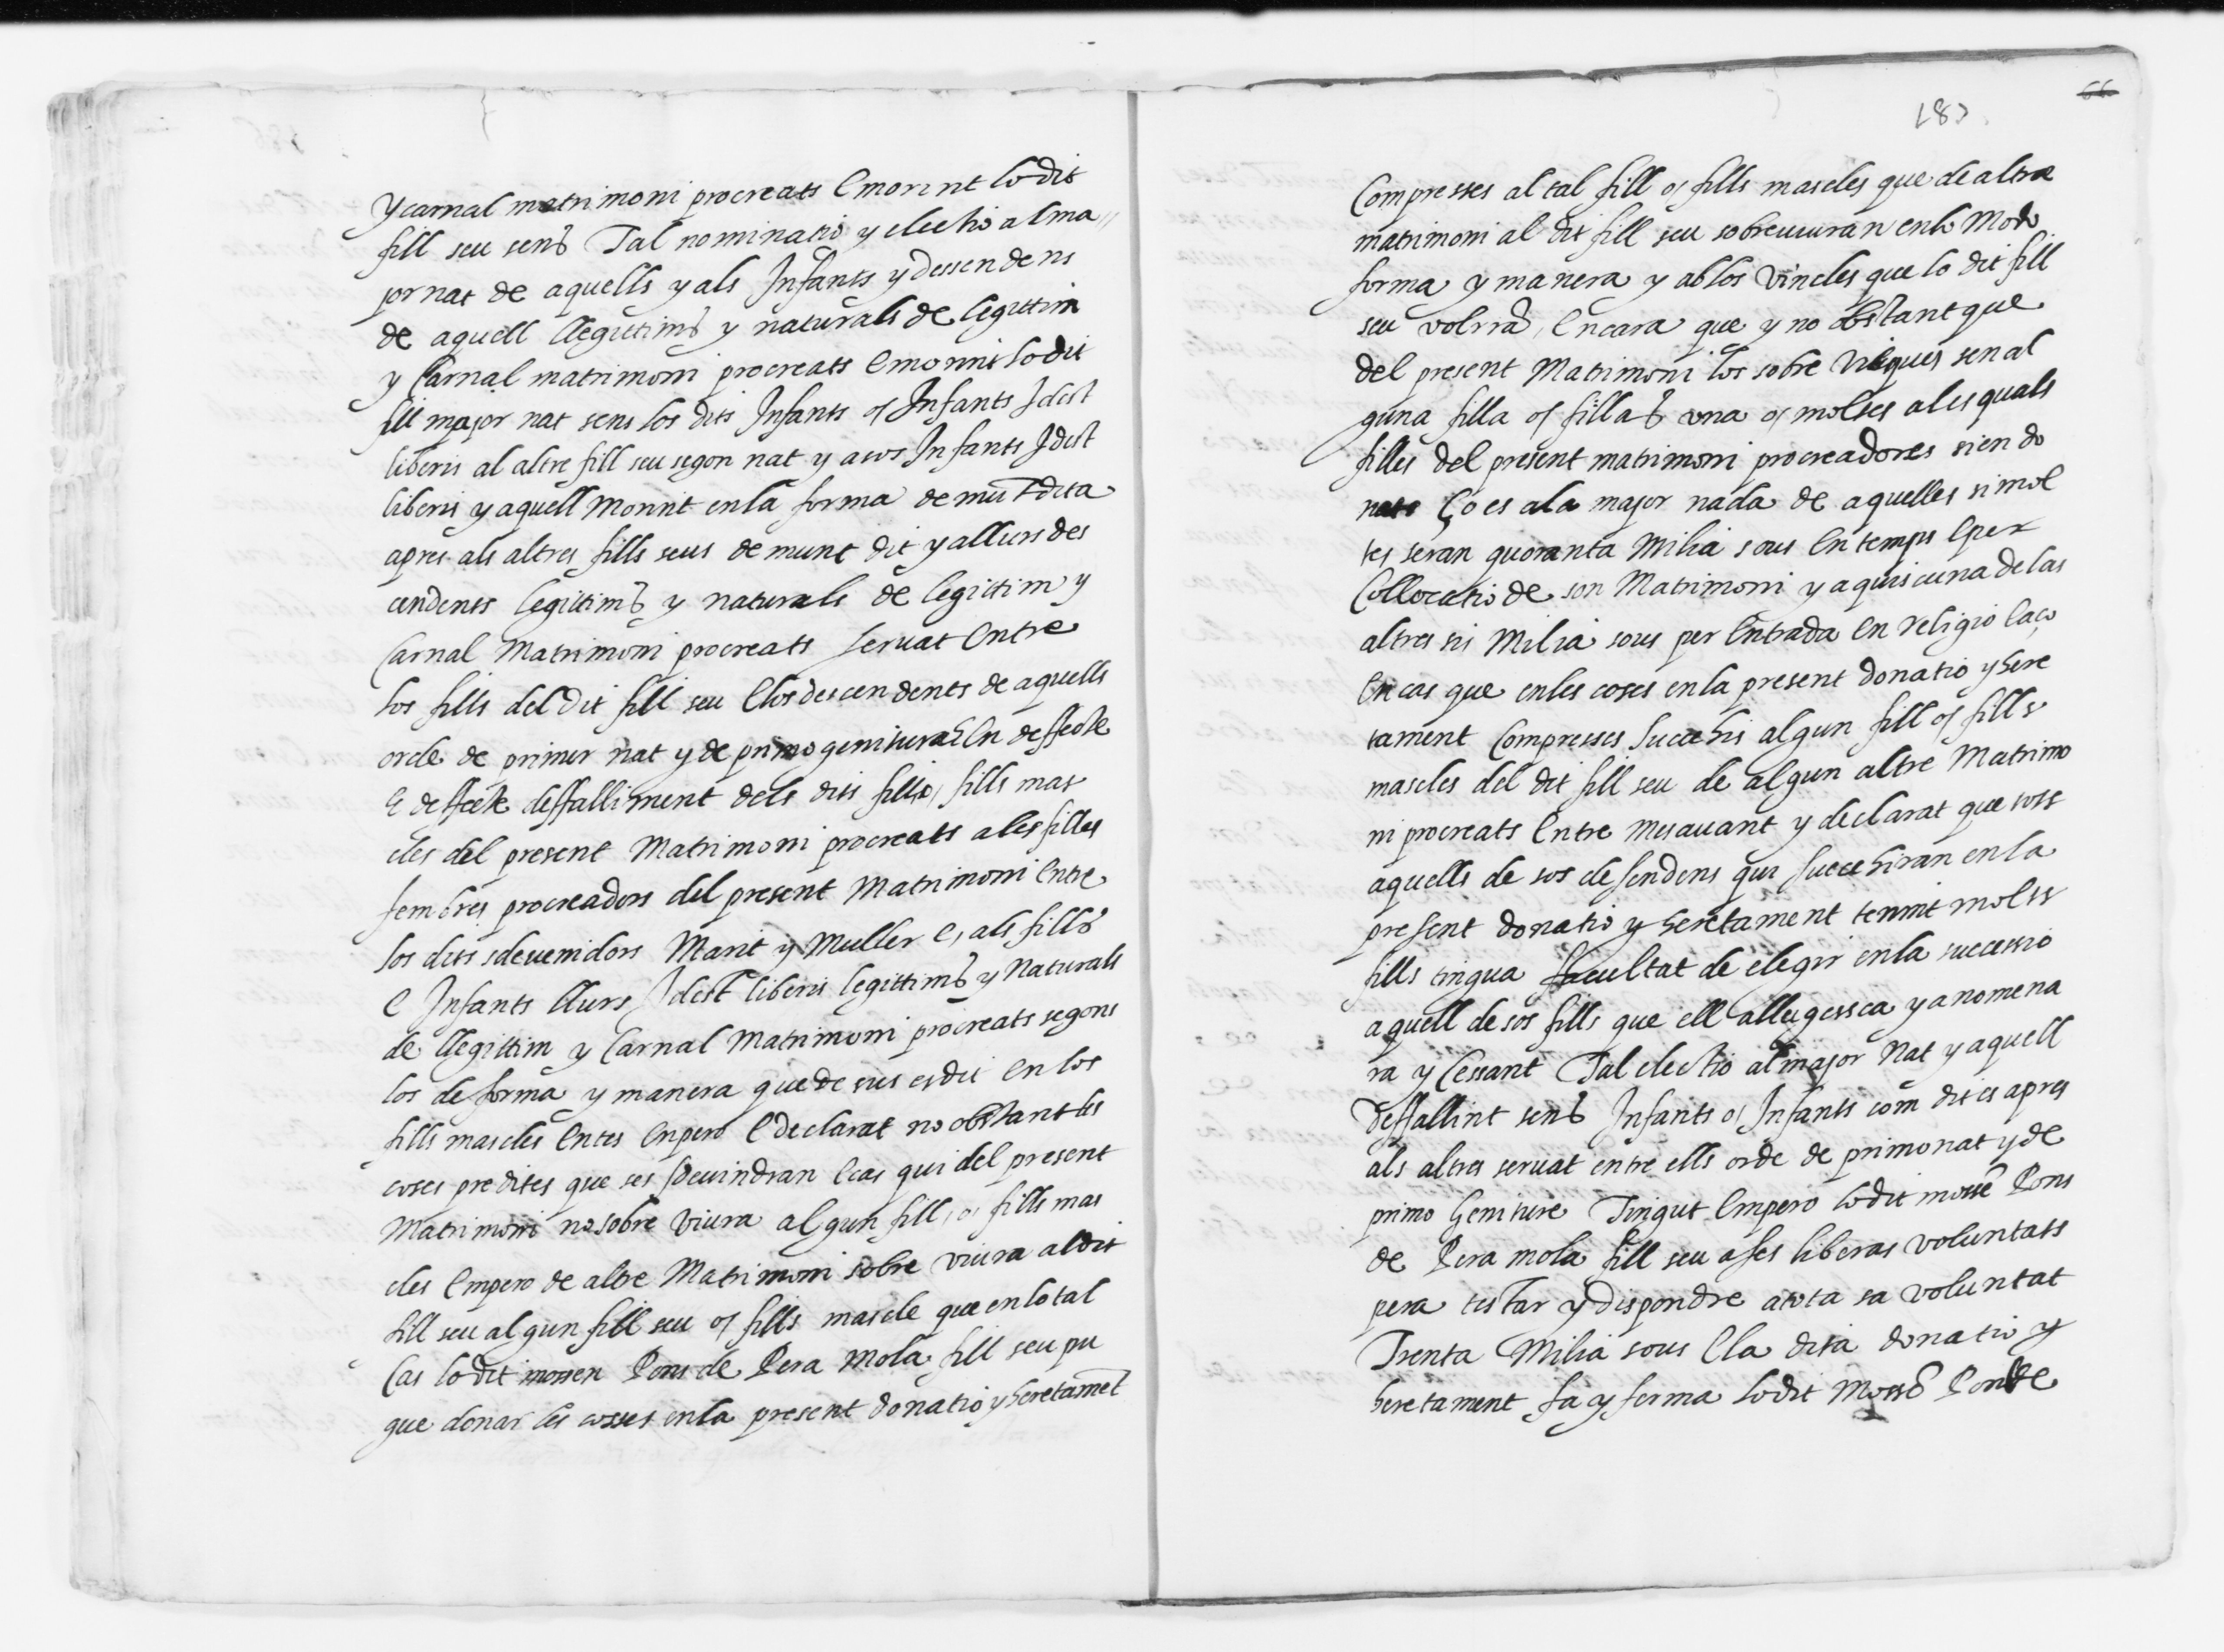 y carnal matrimoni procreats E morint lo dit
fill seu sens Tal nominatio y electio al ma
jor nat de aquells y als Infants y dessendens
de aquell llegittims y naturals de legittim
y Carnal matrimoni procreats E morint lo dit
fill major nat sens los dits Infants o Infants Idest
liberis al altre fill seu segon nat y a sos Infants Idest
liberis y aquell Morint en la forma demunt dita
apres als altres fills seus demunt dit y a llurs des
cendents legittims y naturals de legittim y
Carnal Matrimoni procreats servat Entre
los fills del dit fill seu E los descendents de aquells
orde de primer nat y de primogenitura E En deffecte
E deffecte deffalliment dels dits fill o fills mas
cles del present Matrimoni procreats a les filles
fembres procreadors del present Matrimoni Entre
los dits sdevenidors Marit y Muller E als fills
E Infants llurs Idest liberis legittims y Naturals
de llegittim y Carnal Matrimoni procreats segons
los de forma y manera que de sus es dit En los
fills mascles Entes Enpero E declarat no obstant les
coses predites que ses sdevindran E cas qui del present
Matrimoni no sobre viura algun fill, o fills mas
cles Empero de altre Matrimoni sobre viura al dit
fill seu algun fill seu o fills mascle que en lo tal
Cas lo dit mossen Pons de Pera Mola fill seu pu
gue donar les cosses en la present donatio y heretament
187
66
Compresses al tal fill o fills mascles que de altre
matrimoni al dit fill seu sobreviuran en lo Modo
forma y manera y ab los vincles que lo dit fill
seu volria, Encara que y no obstant que
del present Matrimoni los sobre visques sen al
guna filla o fillas una o moltes a les quals
filles del present matrimoni procreadores siendo
Ço es a la major nada de aquelles si mol
tes seran quoranta Milia sous En temps E per
Collocatio de son Matrimoni y a quiscuna de las
altres sis Milia sous per Entrada En religio E aço
En cas que en les coses en la present donatio y here
tament Compresses succehis algun fill o fills
mascles del dit fill seu de algun altre Matrimo
ni procreats Entre mes avant y declarat que tots
aquells de sos desendens qui succehiran en la
present donatio y heretament tenint molts
fills tingua facultat de elegir en la successio
aquell de sos fills que ell allegessca y anomena
ra y Cessant Tal electio al major Nat y aquell
Deffallint sens Infants o Infants com dit es apres
als altres servat entre ells orde de primonat y de
primo Geniture Tingut Empero lo dit mossen Pons
de Pera mola fill seu a ses liberas voluntats
pera testar y dispondre a tota sa voluntat
Trenta Milia sous E la dita donatio y
heretament fa y ferma lo dit Mossen Pon de